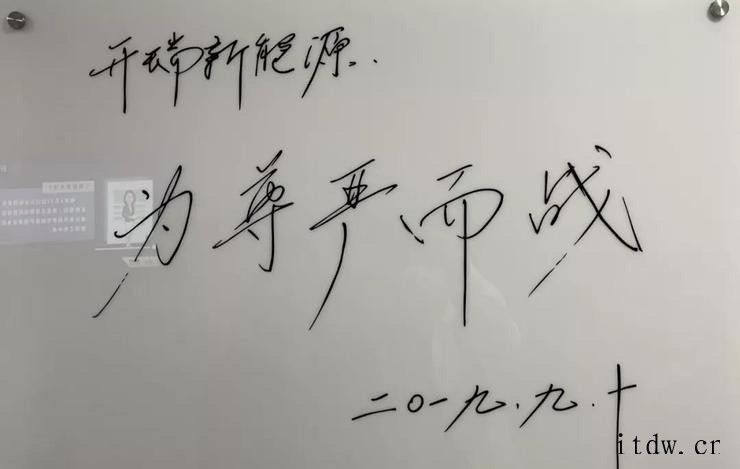 开端新能源..
为尊严而战
二〇一九.九.十
itdw.cr